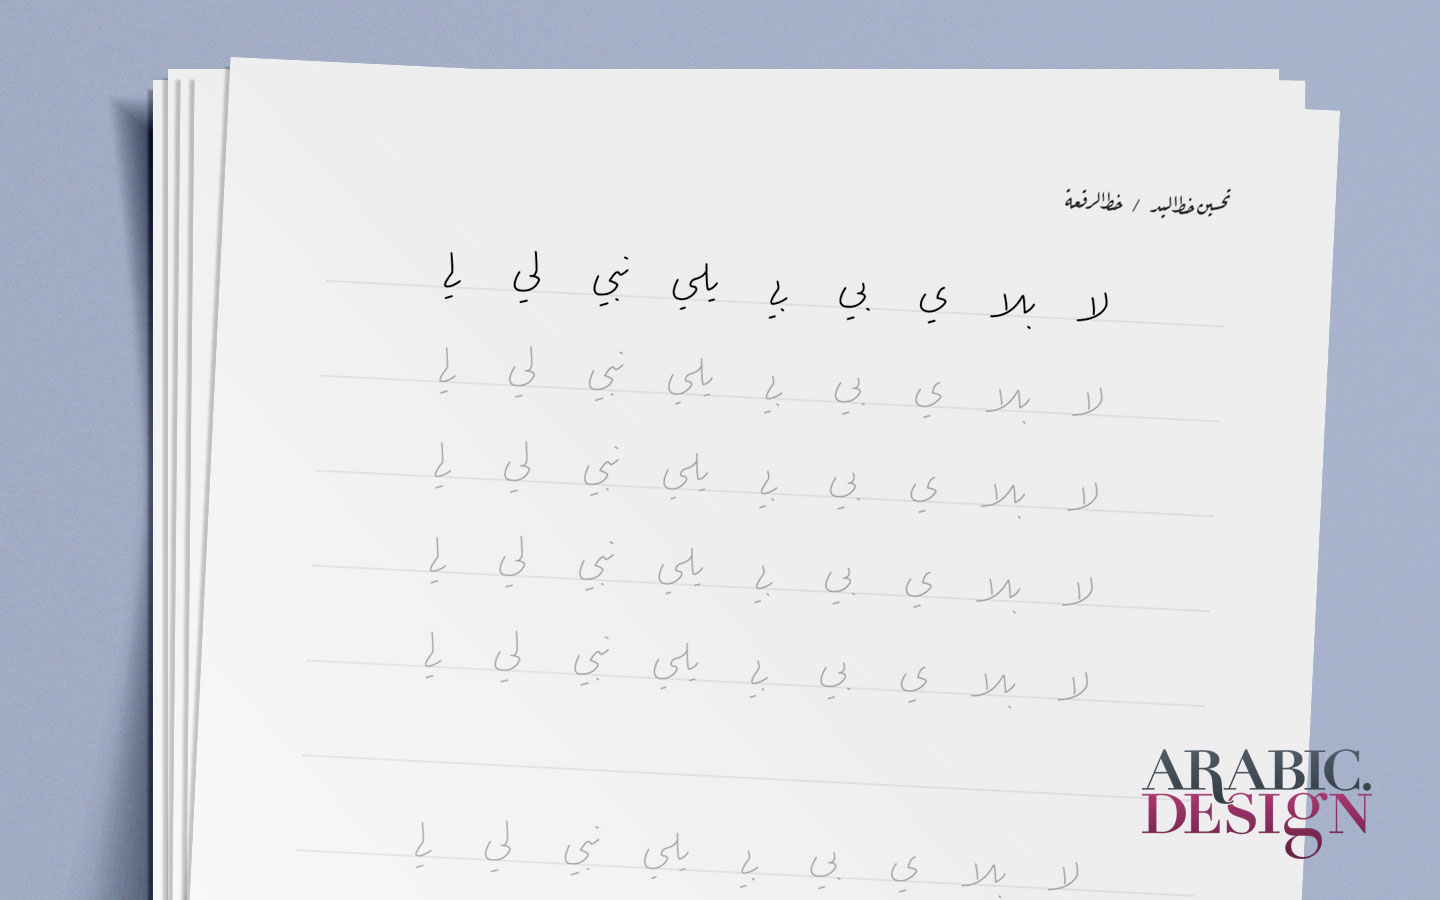 تحسين خط اليد / خط الرقعة
لا بلا ي بي بي يلي نبي لي لي
لا بلا ي بي بي يلي نبي لي لي
لا بلا ي بي بي يلي نبي لي لي
لا بلا ي بي بي يلي نبي لي لي
لا بلا ي بي بي يلي نبي لي لي
لا بلا ي بي بي يلي نبي لي لي
ARABIC.
DESIGN